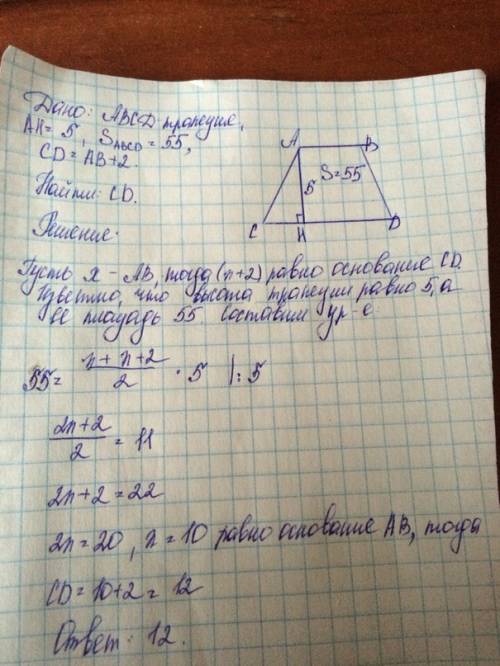 Дано: ABCD трапеция,
AH = 5, SABCD = 55,
CD = AB+2.
Найти: CD.
Решение:
A B
5 S=55
C H D
Пусть x - AB, тогда (x+2) равно основание CD.
Известно, что высота трапеции равно 5, а
её площадь 55 составим ур-е
55 = x + x+2 / 2 · 5 |: 5
2x+2 / 2 = 11
2x+2 = 22
2x = 20, x = 10 равно основание AB, тогда
CD = 10+2 = 12
Ответ: 12.